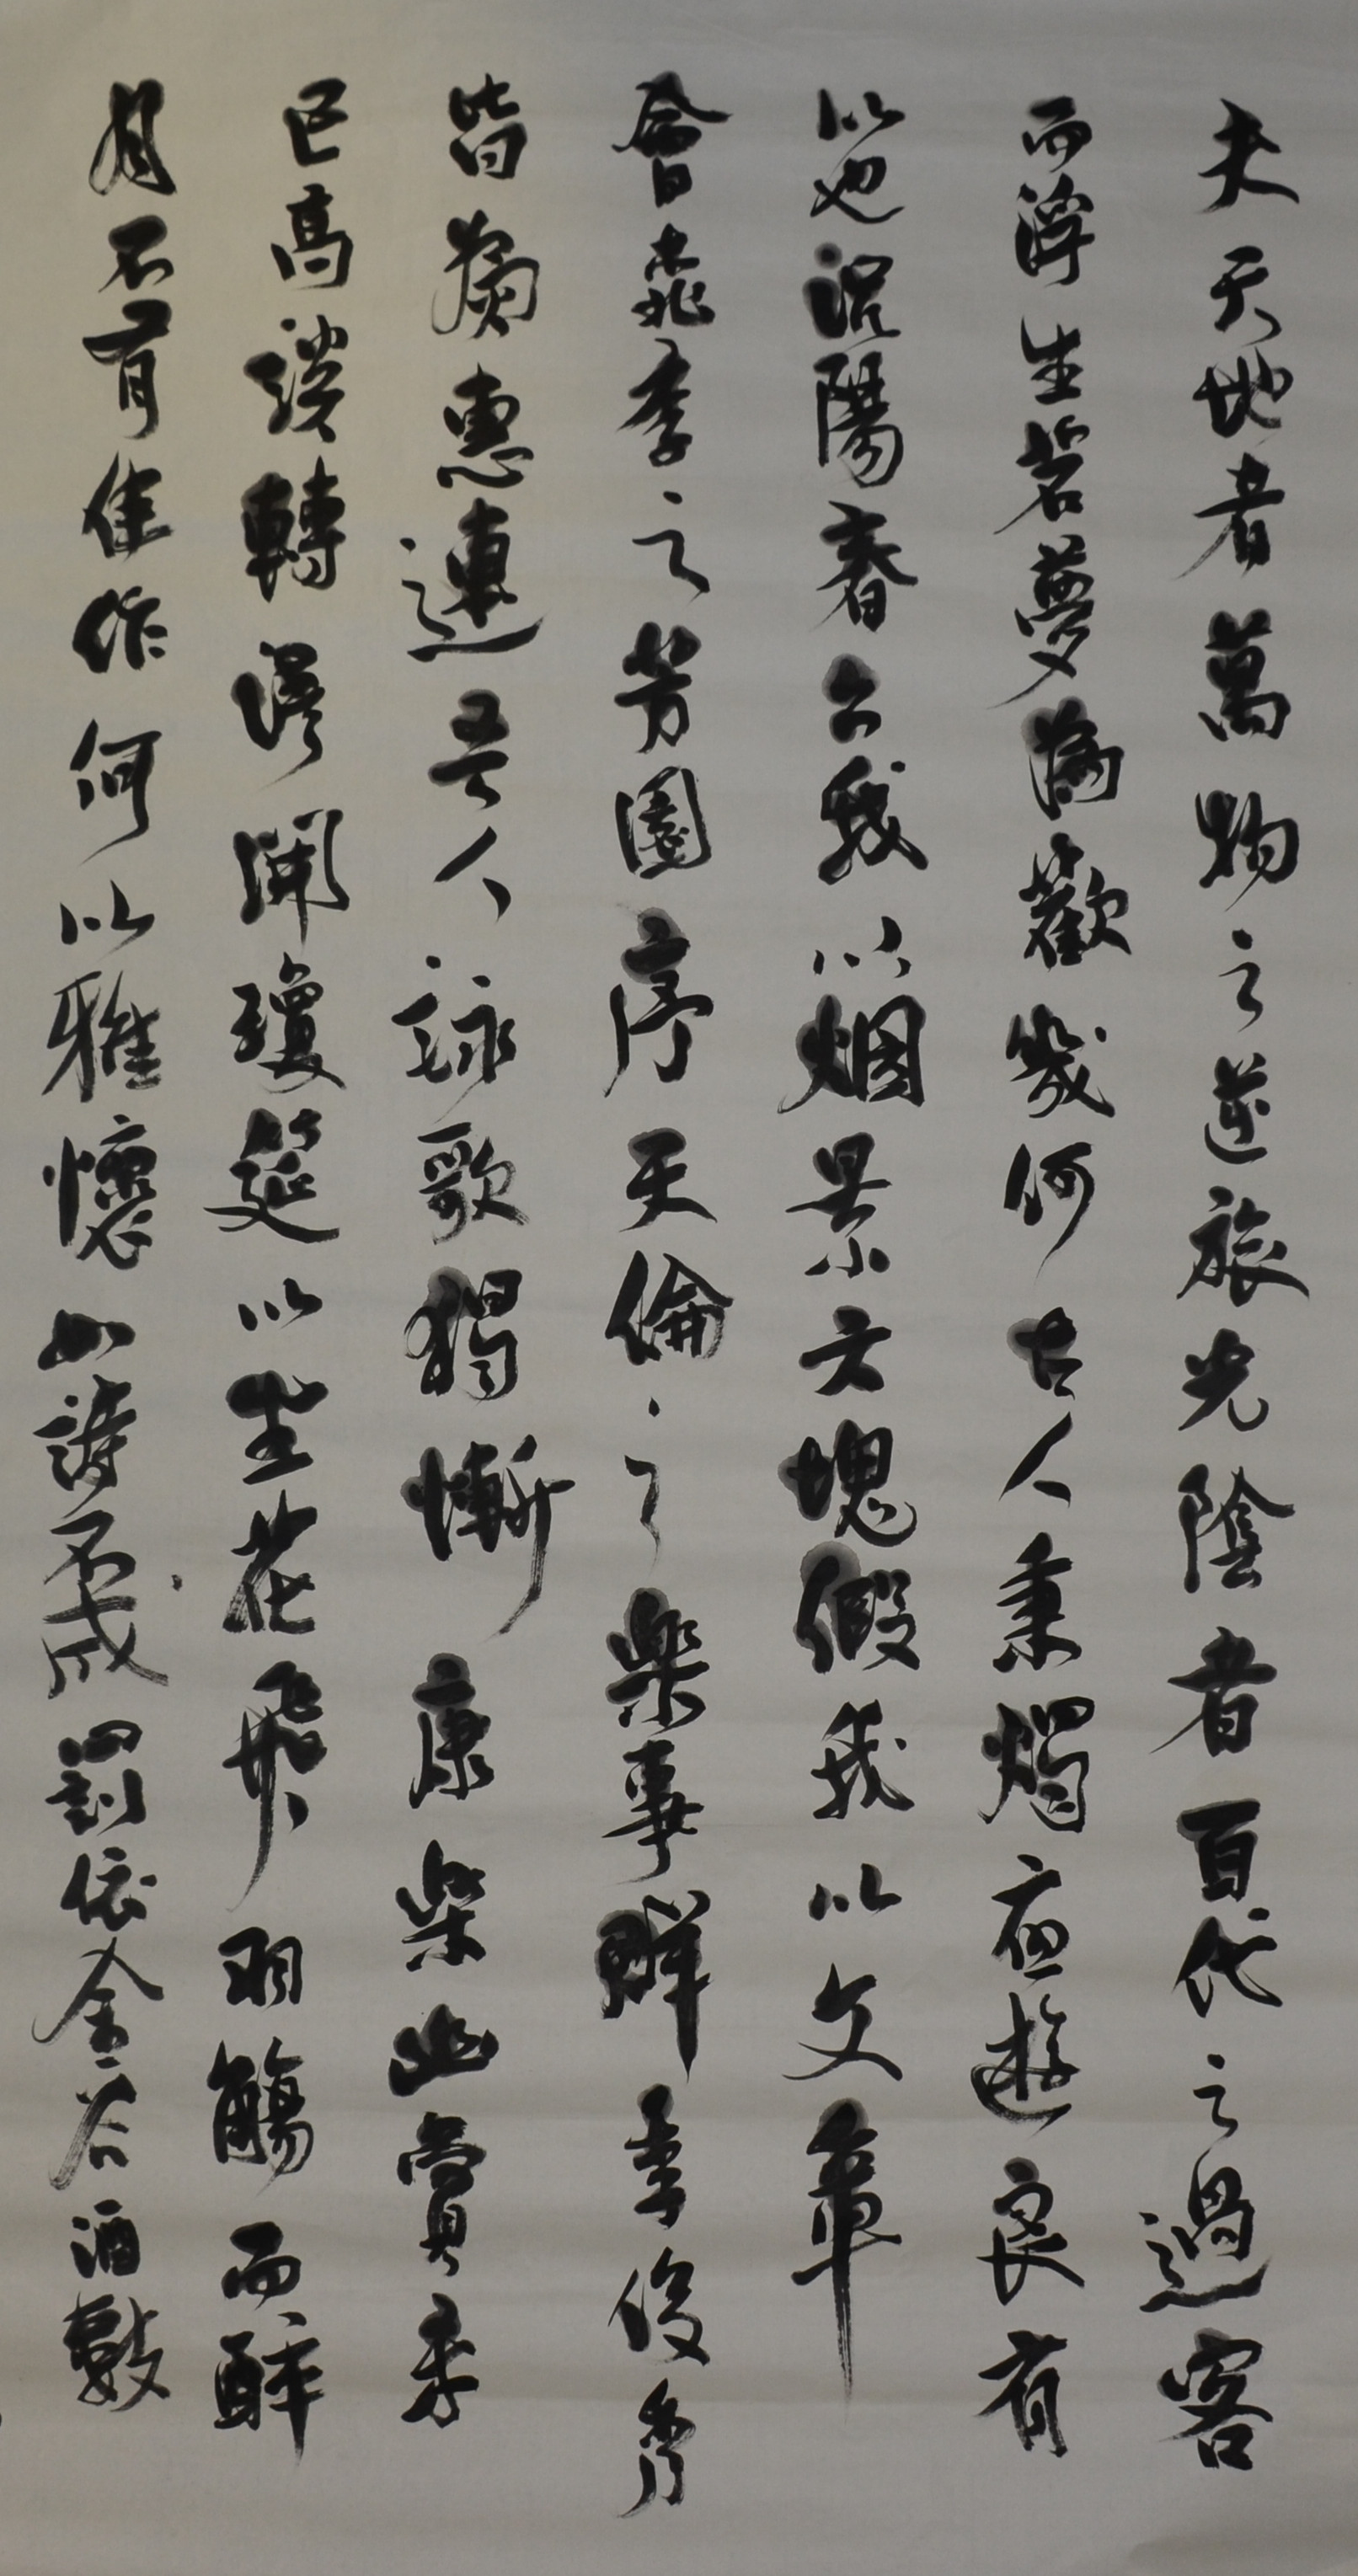 夫天地者萬物之逆旅光陰者百代之過客
而浮生若夢為歡幾何古人秉燭夜遊良有
以也況陽春召我以烟景大塊假我以文章
會桃李之芳園序天倫之樂事群季俊秀
皆為惠連吾人詠歌獨慚康樂幽賞未
已高談轉清開瓊筵以坐花飛羽觴而醉
月不有佳作何以雅懷如詩不成罰依金谷酒數